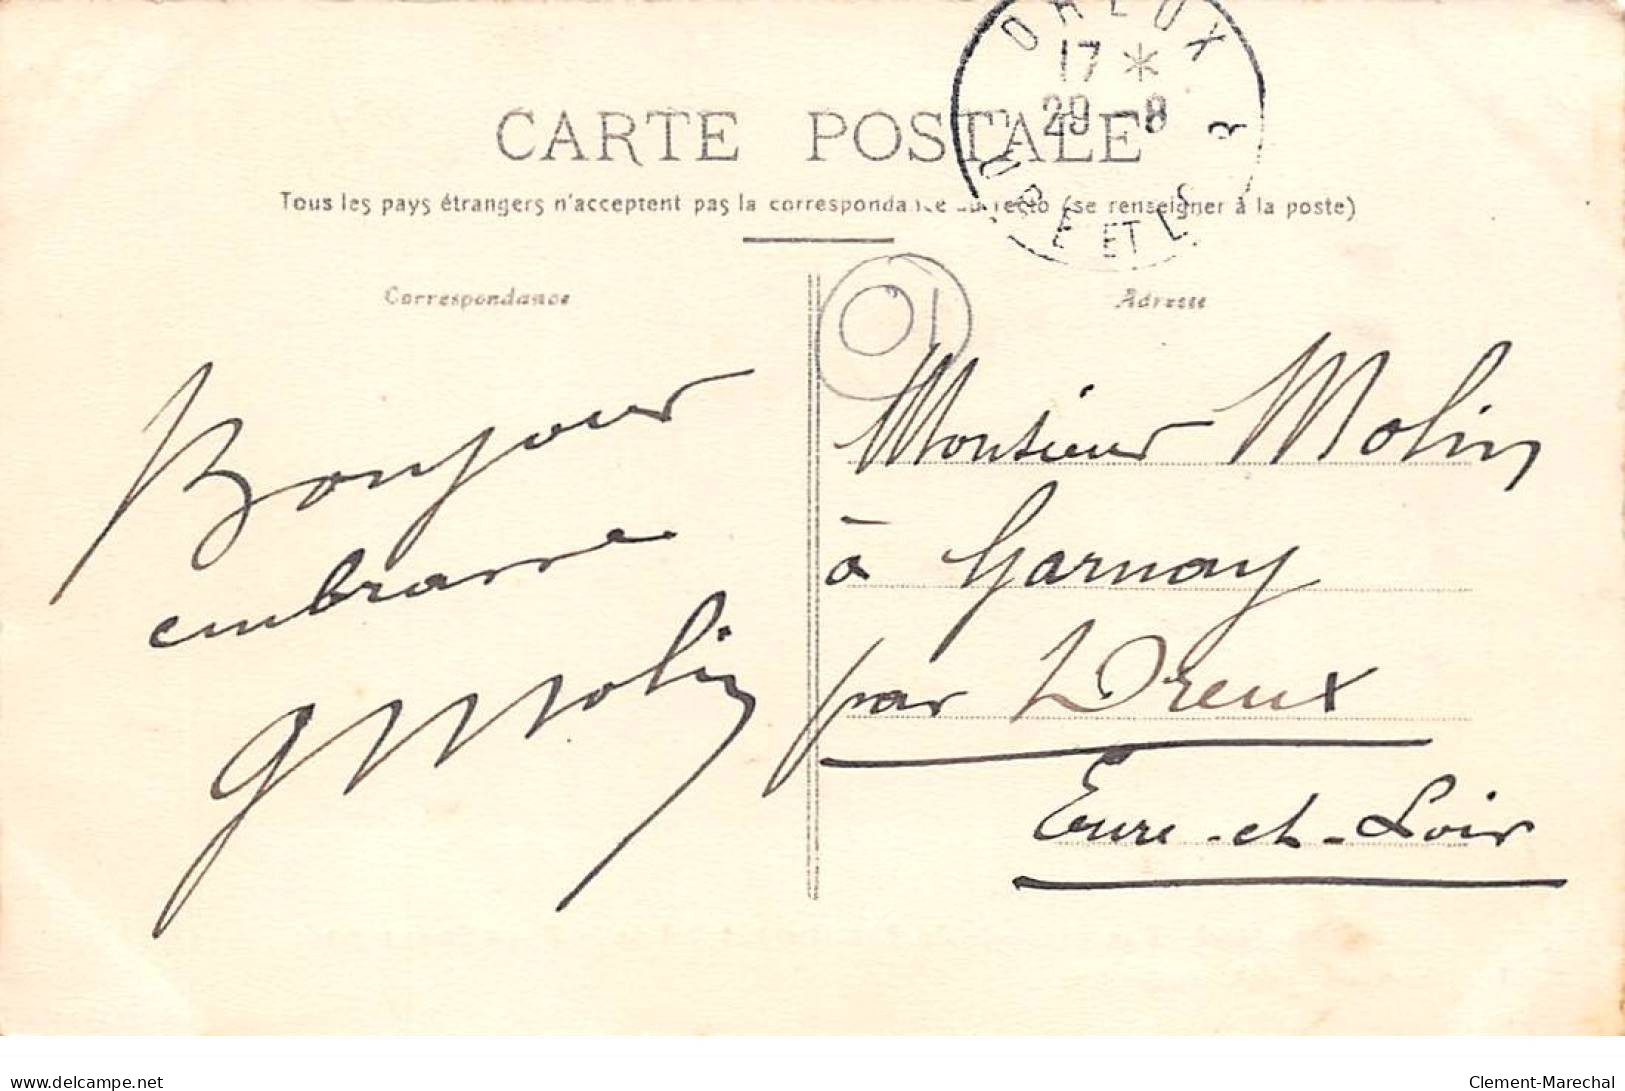 DREUX
17 *
29 - 8
EURE ET L.
CARTE POSTALE
Tous les pays étrangers n'acceptent pas la correspondance au recto (se renseigner à la poste)
Correspondance
Adresse
01
Bonjour
embrasse
G Molin
Monsieur Molin
à Garnay
par Dreux
Eure-et-Loir
delcampe.net
Clement-Marechal